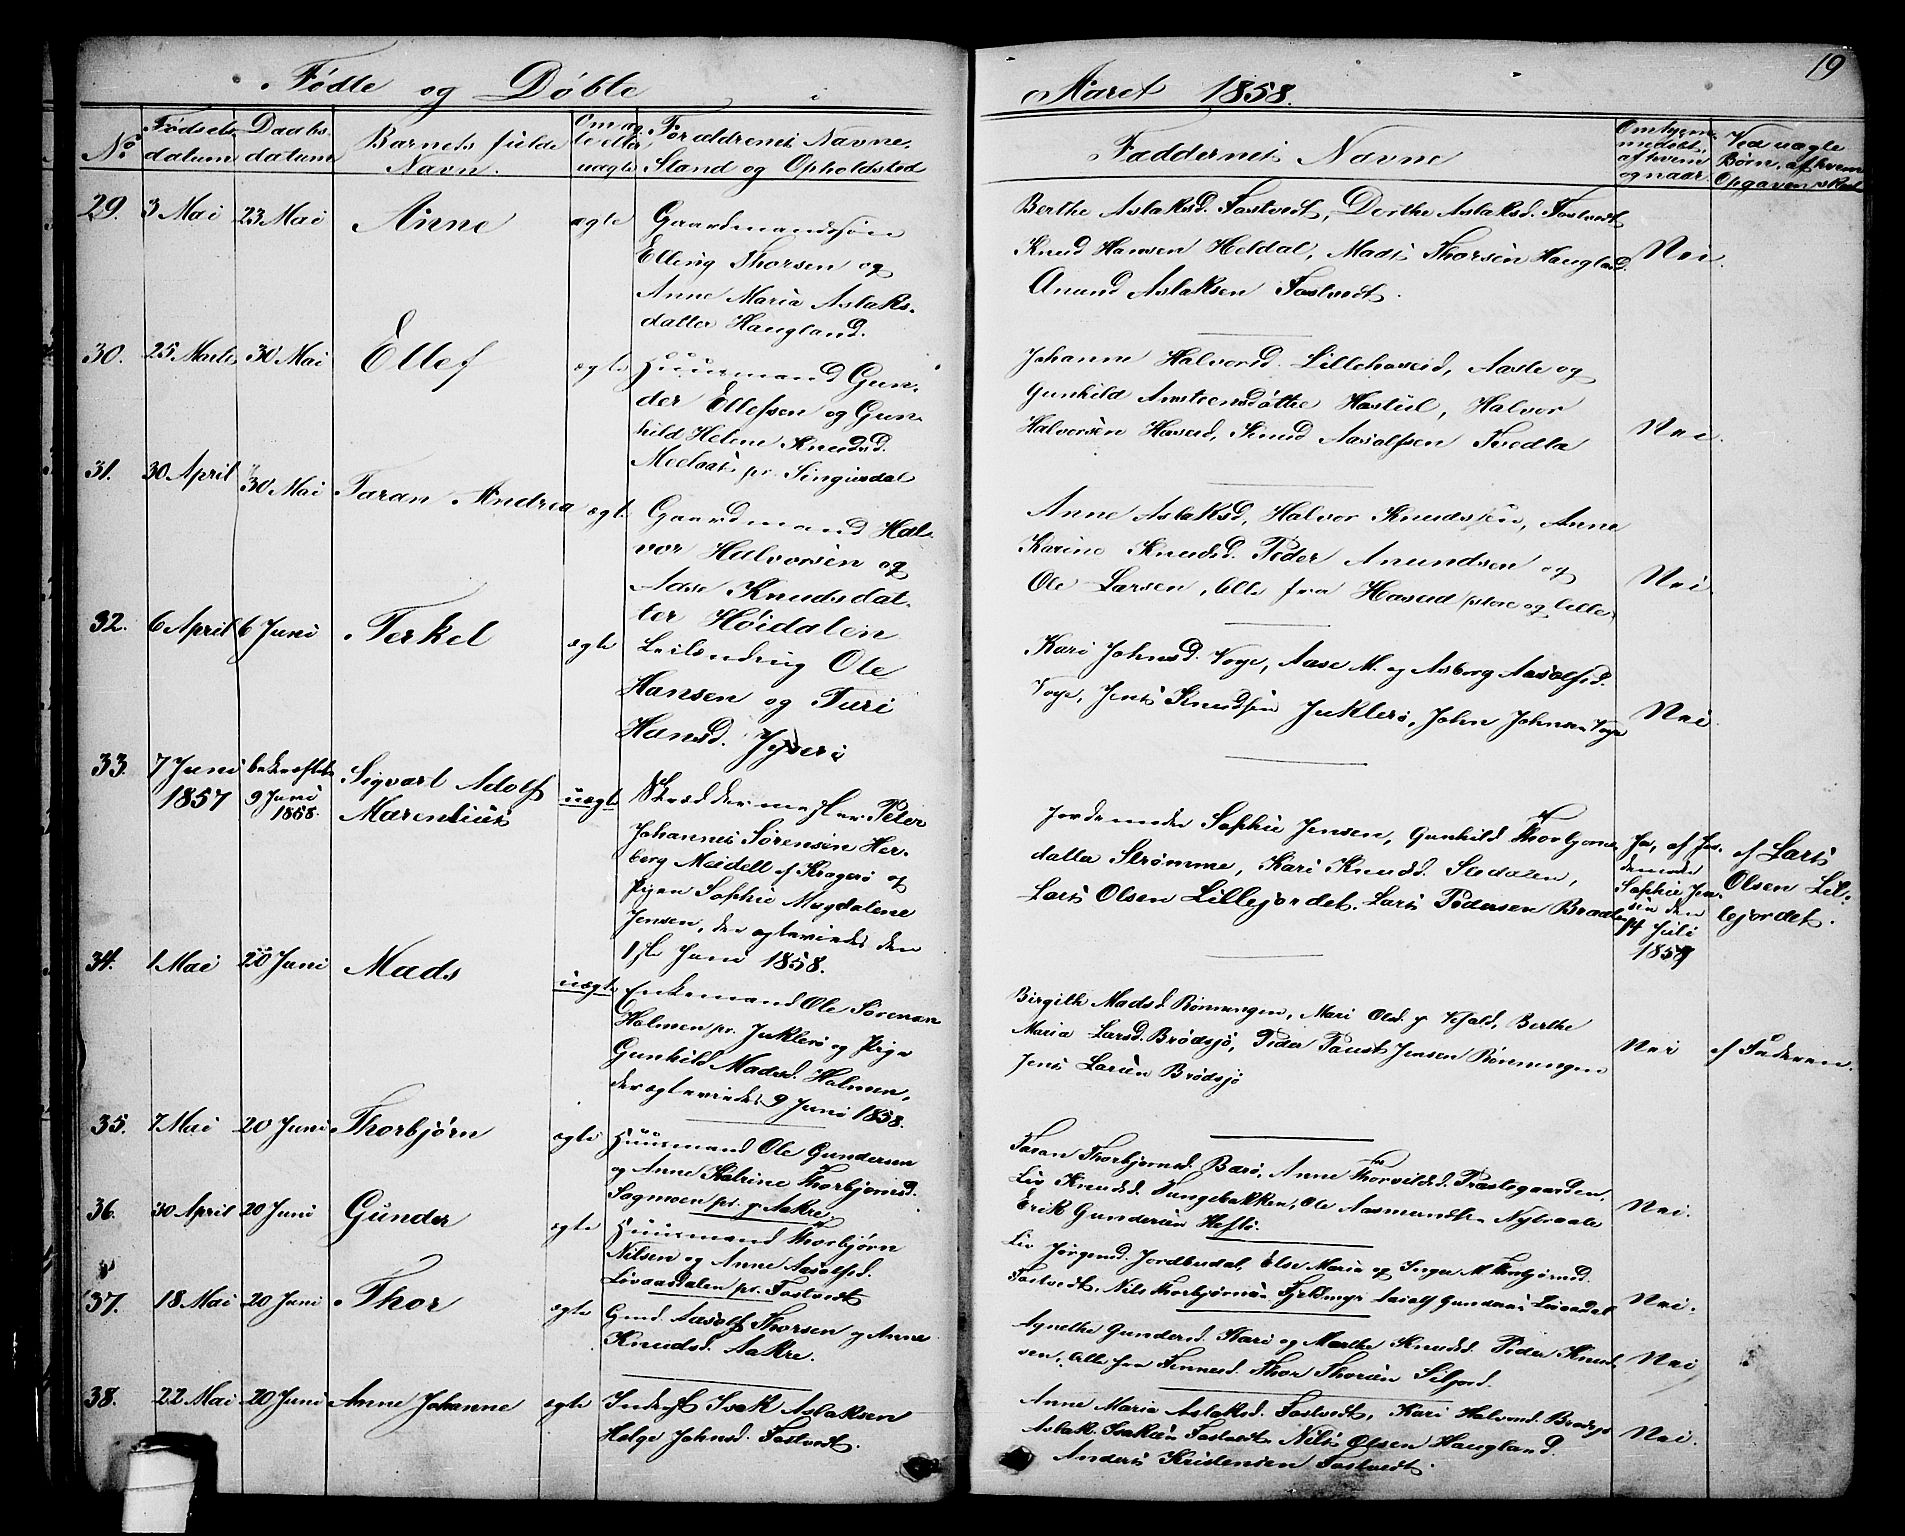 19
Fødte og Døbte i Aaret 1858.
No
Fødsels datum
Daabs datum
Barnets fulde Navn.
Om ægte eller uægte
Forældrenes Navne, Stand og Opholdsted
Faddernes Navne
Om hjemmedøbt, af hvem og naar
Ved uægte Børn, af hvem Opgaven skeet
29. 3 Mai 23 Mai Anne ægte
Gaardmandssøn
Elling Thorsen og
Anne Maria Aslaks-
datter Haugland.
Berthe Aslaksd. Fostvedt, Dorthe Aslaksd. Fostvedt
Knud Hansen Heldal, Mads Thorsen Haugland.
Anund Aslaksen Fostvedt.
Nei.
30. 25 Marts 30 Mai Ellef ægte
Huusmand Gun-
der Ellefsen og Gun-
hild Helene Knudsd.
pr. Singusdal
Johanne Halvorsd. Lillehaseid, Aaste og
Gunhild Halvor
Halvorsen Haseid, Knud Aasolfsen Tvedta
Nei.
31. 30 April 30 Mai Taran Andrea ægte
Gaardmand Hal-
vor Halvorsen og
Aase Knudsdat-
ter Høidalen
Anne Aslaksd, Halvor Knudssen, Anne
Karine Knudsd. Peder Anundsen og
Ole Larsen, Alle fra Haseid store og lille.
Nei.
32. 6 April 6 Juni Terkel ægte
Leilending Ole
Hansen og Turi
Hansd.
Kari Johnsd. Voje, Aase M. og Asborg Aasolfsd.
Voje, Jens Knudsen Juklerø, John Johnsen Voje
Nei.
33. 7 Juni 1857 bekræftet 9 Juni 1858. Sigvart Adolf Marentius uægte
Skræddermester Peter
Johannes Sørensen Her-
berg Meidell af Kragerø og
Pigen Sophie Magdalene
Jensen, der ægteviedes den
1ste Juni 1858.
Jordemoder Sophie Jensen, Gunhild Thorbjørns
datter Strømme, Kari Knudsd. Stedalen,
Lars Olsen Lillejordet. Lars Pedersen
Ja, af Jor-
demoder
Sophie Jen-
sen den
14 Juli
1857
af Lars
Olsen Lil-
lejordet.
34. 1 Mai 20 Juni Mads uægte
Enkemand Ole Sørensen
Holmen pr. Juklerø og Pige
Gunhild Madsd. Holmen,
der ægteviedes 9 Juni 1858.
Birgithe Madsd. Rønningen, Mari Olsd. Berthe
Maria Larsd. Brødsjø, Peder Faust Jensen Rønningen
Jens Larsen Brødsjø
Nei
af Faderen.
35. 7 Mai 20 Juni Thorbjørn ægte
Huusmand Ole Gundersen
og Anne Katrine Thorbjørnsd.
Sagmoen pr. Aakre
Taran Thorbjørnsd. Barø, Anne Thorvildsd. Præstegaarden,
Liv Knudsd. Tangebakken, Ole Aasmundsen
Erik Gundersen Hefte.
Nei.
36. 30 April 20 Juni Gunder ægte
Huusmand Thorbjørn
Nilsen og Anne Aasolfsd.
Løvaasdalen pr. Fostvedt
Liv Jørgensd. Jordbudal, Else Maria og Inger M. Thorbjørnsd.
Fostvedt, Nils Thorbjørnsen Fjeldmyr Aasolf Gundersen
Nei.
37. 18 Mai 20 Juni Thor ægte
Gmd. Aasolf Thorsen og Anne
Knudsd. Aakre.
Agnethe Gundersd. Kari og Marthe Knudsd. Peder Knud-
sen, Alle fra Thor Thorsen Siljord.
Nei
38. 22 Mai 20 Juni Anne Johanne ægte
Inderst Isak Aslaksen
Helge Johnsd. Fostvedt.
Anne Maria Aslaksd. Fostvedt, Kari Halvorsd.
Aslak Isaksen Fostvedt, Nils Olsen Haugland.
Anders Kristensen Fostvedt.
Nei.